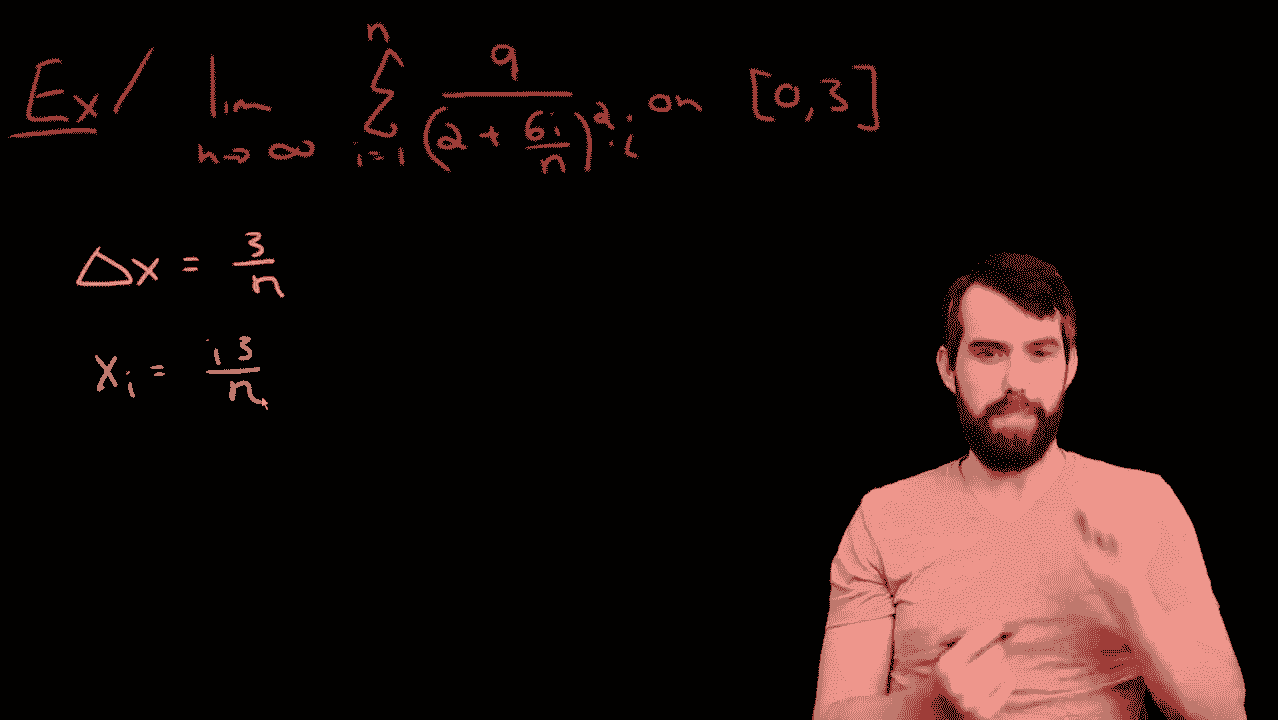 Ex/ lim n→∞ n Σ i=1 9/(2 + 6i/n)²·i on [0,3]
Δx = 3/n
xᵢ = i3/n